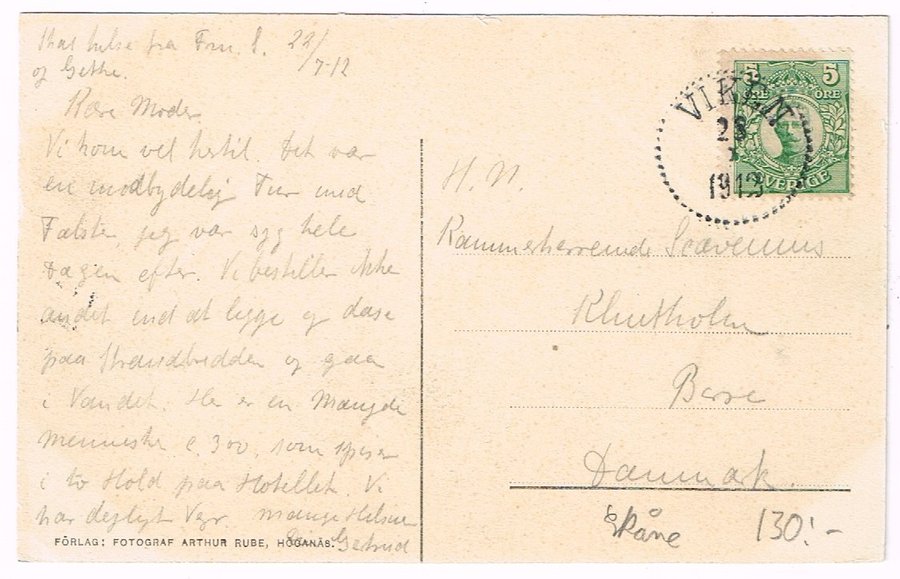 Skal hilse fra Fru S. 22/7-12
og Grethe.
Kære Moder
Vi kom vel hertil. Det var
en modbydelig Tur med
Falster, jeg var syg hele
Dagen efter. Vi bestiller ikke
andet end at ligge og dase
paa Strandbredden og gaa
i Vandet. Her er en Mængde
Mennesker c. 300, som spiser
i to Hold paa Hotellet. Vi
har dejligt Vejr. Mange Hilsner
Gertrud
FÖRLAG: FOTOGRAF ARTHUR RUBE, HÖGANÄS.
5 5
ÖRE ÖRE
SVERIGE
VIKEN
23
1912
H. N.
Kammerherreinde Scavenius
Klintholm
Borre
Danmark.
Skåne 130:-